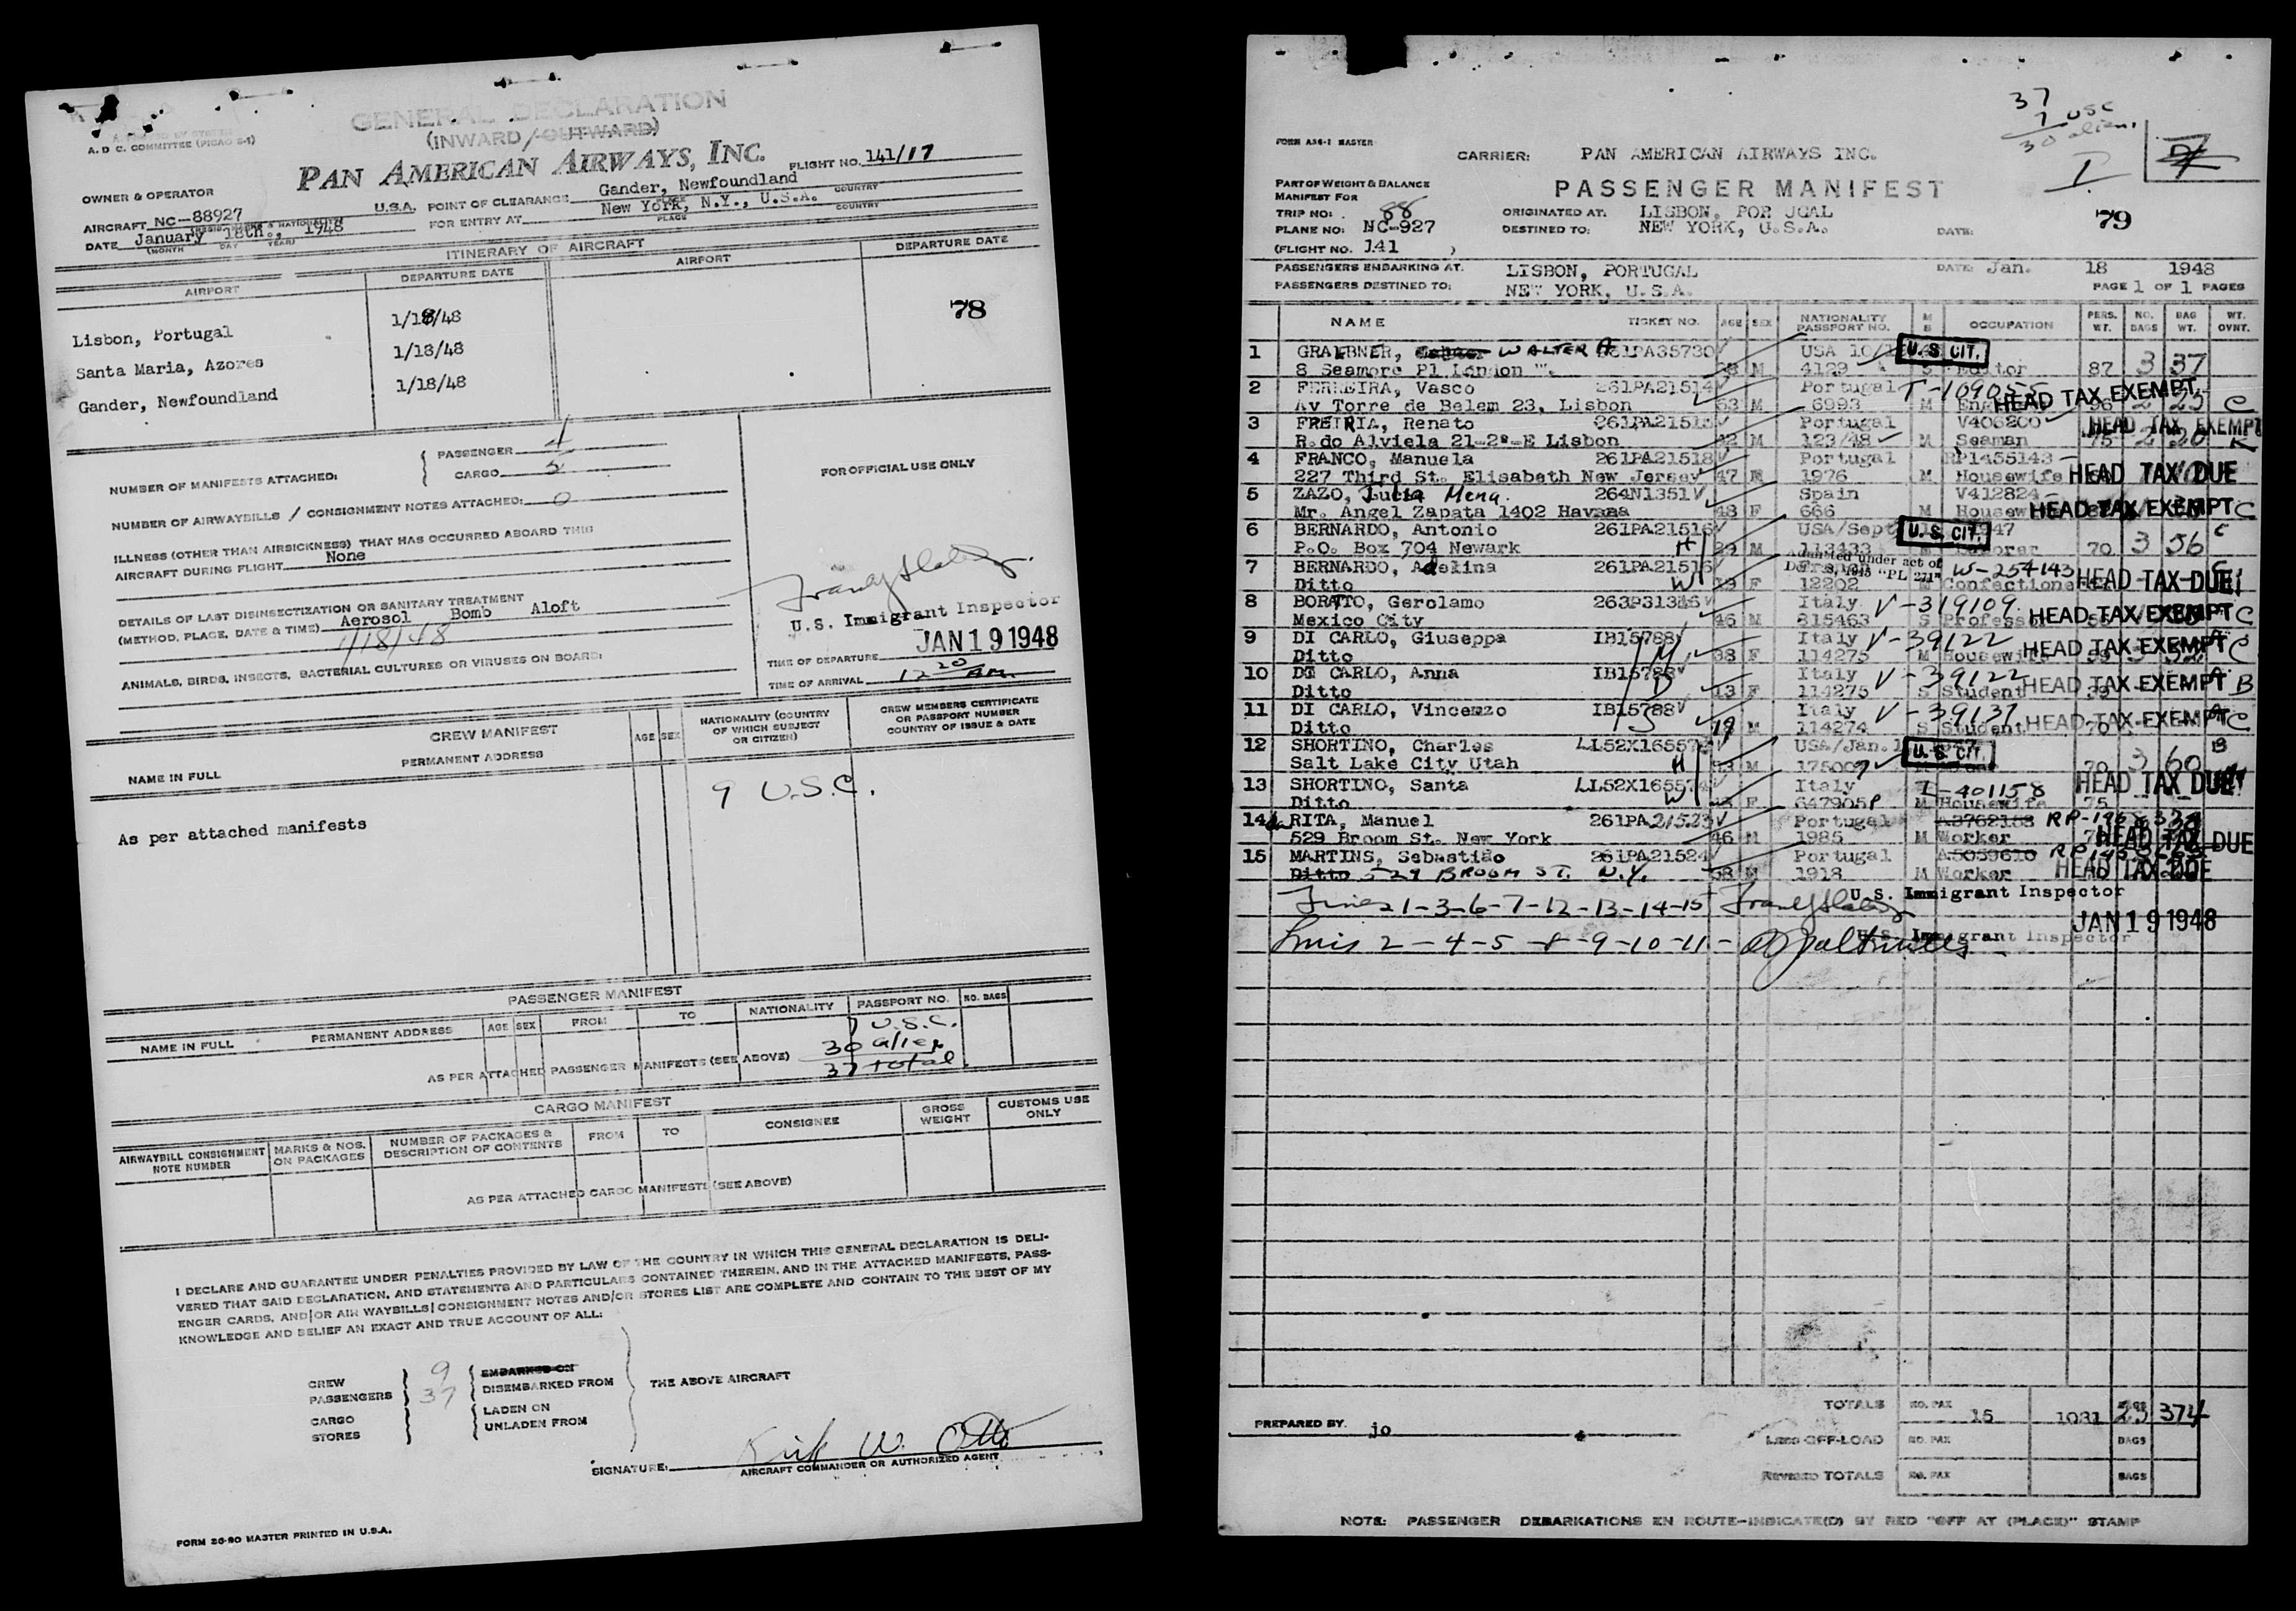 GENERAL DECLARATION
(INWARD/OUTWARD)
A. D C. COMMITTEE (PICAO S-1)
PAN AMERICAN AIRWAYS, INC.
FLIGHT NO. 141/17
OWNER & OPERATOR
U.S.A. POINT OF CLEARANCE Gander, Newfoundland
PLACE COUNTRY
AIRCRAFT NC-88927
FOR ENTRY AT New York, N.Y., U.S.A.
PLACE COUNTRY
DATE January 18th, 1948
(MONTH DAY YEAR)
ITINERARY OF AIRCRAFT
AIRPORT DEPARTURE DATE AIRPORT DEPARTURE DATE
78
Lisbon, Portugal 1/18/48
Santa Maria, Azores 1/18/48
Gander, Newfoundland 1/18/48
NUMBER OF MANIFESTS ATTACHED: PASSENGER
CARGO
NUMBER OF AIRWAYBILLS / CONSIGNMENT NOTES ATTACHED: 0
ILLNESS (OTHER THAN AIRSICKNESS) THAT HAS OCCURRED ABOARD THIS
AIRCRAFT DURING FLIGHT None
DETAILS OF LAST DISINSECTIZATION OR SANITARY TREATMENT
(METHOD, PLACE, DATE & TIME) Aerosol Bomb Aloft
1/18/48
ANIMALS, BIRDS, INSECTS, BACTERIAL CULTURES OR VIRUSES ON BOARD:
FOR OFFICIAL USE ONLY
U.S. Immigrant Inspector
JAN 19 1948
TIME OF DEPARTURE
TIME OF ARRIVAL 12 20 AM.
CREW MANIFEST
NAME IN FULL PERMANENT ADDRESS AGE SEX NATIONALITY (COUNTRY OF WHICH SUBJECT OR CITIZEN) CREW MEMBERS CERTIFICATE OR PASSPORT NUMBER COUNTRY OF ISSUE & DATE
9 U.S.C.
As per attached manifests
PASSENGER MANIFEST
NAME IN FULL PERMANENT ADDRESS AGE SEX FROM TO NATIONALITY PASSPORT NO. NO. BAGS
7 U.S.C.
30 alien
37 total
AS PER ATTACHED PASSENGER MANIFESTS (SEE ABOVE)
CARGO MANIFEST
AIRWAYBILL CONSIGNMENT NOTE NUMBER MARKS & NOS. ON PACKAGES NUMBER OF PACKAGES & DESCRIPTION OF CONTENTS FROM TO CONSIGNEE GROSS WEIGHT CUSTOMS USE ONLY
AS PER ATTACHED CARGO MANIFESTS (SEE ABOVE)
I DECLARE AND GUARANTEE UNDER PENALTIES PROVIDED BY LAW OF THE COUNTRY IN WHICH THIS GENERAL DECLARATION IS DELI-
VERED THAT SAID DECLARATION, AND STATEMENTS AND PARTICULARS CONTAINED THEREIN, AND IN THE ATTACHED MANIFESTS, PASS-
ENGER CARDS, AND/OR AIR WAYBILLS/CONSIGNMENT NOTES AND/OR STORES LIST ARE COMPLETE AND CONTAIN TO THE BEST OF MY
KNOWLEDGE AND BELIEF AN EXACT AND TRUE ACCOUNT OF ALL:
CREW 9 EMBARKED ON
PASSENGERS 37 DISEMBARKED FROM THE ABOVE AIRCRAFT
CARGO LADEN ON
STORES UNLADEN FROM
SIGNATURE: Kirk W. Otto
AIRCRAFT COMMANDER OR AUTHORIZED AGENT
FORM 36-90 MASTER PRINTED IN U.S.A.
37
7 USC
30 alien
FORM A36-1 MASTER
CARRIER: PAN AMERICAN AIRWAYS INC.
PART OF WEIGHT & BALANCE
MANIFEST FOR
PASSENGER MANIFEST
TRIP NO: 88 ORIGINATED AT: LISBON, POR UGAL
79
PLANE NO: NC-927 DESTINED TO: NEW YORK, U.S.A. DATE:
(FLIGHT NO. 141 )
PASSENGERS EMBARKING AT: LISBON, PORTUGAL DATE: Jan. 18 1948
PASSENGERS DESTINED TO: NEW YORK, U.S.A. PAGE 1 OF 1 PAGES
NAME TICKET NO. AGE SEX NATIONALITY PASSPORT NO. M S OCCUPATION PERS. WT. NO. BAGS BAG WT. WT. OVNT.
1 GRAEBNER, WALTER A 261PA35730 USA U.S. CIT.
8 Seamore Pl London W. M 4129 87 3 37
2 FERREIRA, Vasco 261PA21514 Portugal T-109055 HEAD TAX EXEMPT
Av Torre de Belem 23, Lisbon 53 M 6993 M C
3 FREIRIA, Renato Portugal V406200 HEAD TAX EXEMPT
R.do Alviela 21-2º-E Lisbon M 123/48 M Seaman
4 FRANCO, Manuela 261PA21518 Portugal RP1455143
227 Third St. Elisabeth New Jersey 47 F 1976 M Housewife HEAD TAX DUE
5 ZAZO, Julia Mena 264N1351 Spain V412824
Mr. Angel Zapata 1402 Havana F 666 M HEAD TAX EXEMPT C
6 BERNARDO, Antonio 261PA21516 USA/Sept U.S. CIT.
P.O. Box 704 Newark H M 70 3 56
7 BERNARDO, Adelina 261PA21516 Admitted under act of Dec. 1945 "PL 271" W-254143
Ditto W F 12202 M HEAD TAX DUE
8 BORATTO, Gerolamo Italy V-319109
Mexico City 46 M 815463 S HEAD TAX EXEMPT C
9 DI CARLO, Giuseppa IB15788 Italy V-39122
Ditto M 38 F 114275 M Housewife HEAD TAX EXEMPT C
10 DI CARLO, Anna IB15788 Italy V-39122
Ditto D 13 F 114275 S Student HEAD TAX EXEMPT B
11 DI CARLO, Vincenzo IB15788 Italy V-39137
Ditto S M 114274 S Student HEAD TAX EXEMPT C
12 SHORTINO, Charles USA/Jan. U.S. CIT.
Salt Lake City Utah H M 175007 70 3 60 B
13 SHORTINO, Santa Italy I-401158 HEAD TAX DUE
Ditto W F M Housewife 75
14 RITA, Manuel 261PA21523 Portugal
529 Broom St. New York 46 M 1985 M Worker HEAD TAX DUE
15 MARTINS, Sebastião 261PA21524 Portugal
Ditto 529 BROOM ST. N.Y. M 1918 M Worker HEAD TAX DUE
Lines 1-3-6-7-12-13-14-15 U.S. Immigrant Inspector
JAN 19 1948
Lines 2-4-5-8-9-10-11- U.S. Immigrant Inspector
TOTALS NO. PAX 15 1031 374
PREPARED BY. jo
LESS OFF-LOAD NO. PAX BAGS
REVISED TOTALS NO. PAX BAGS
NOTE: PASSENGER DEBARKATIONS EN ROUTE-INDICATE(D) BY RED "OFF AT (PLACE)" STAMP